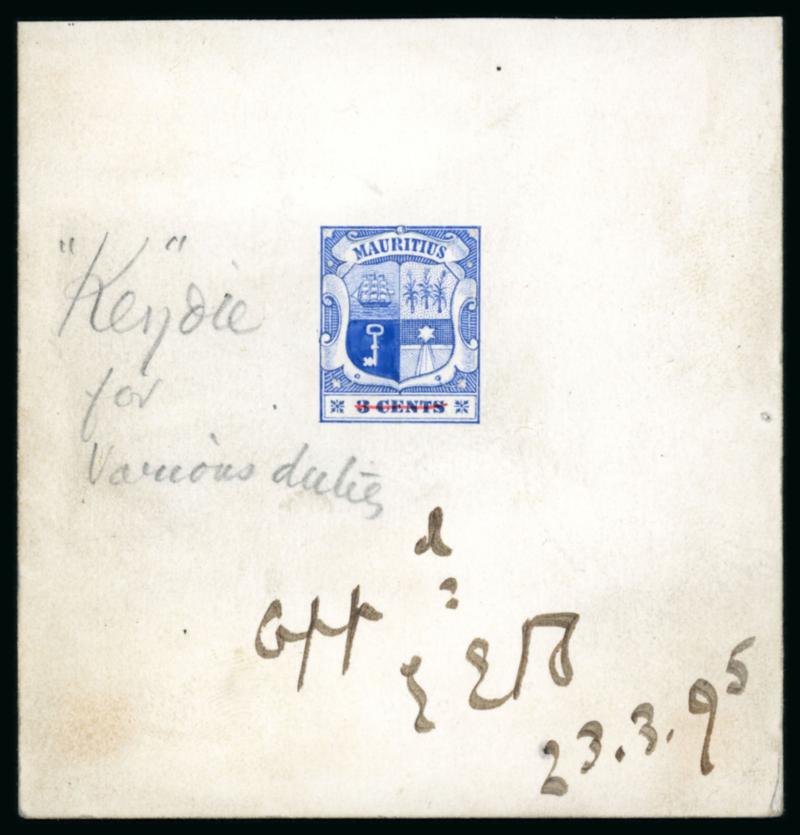 MAURITIUS
3 CENTS
"Key" die
for
Various duties
App d
23.3.95